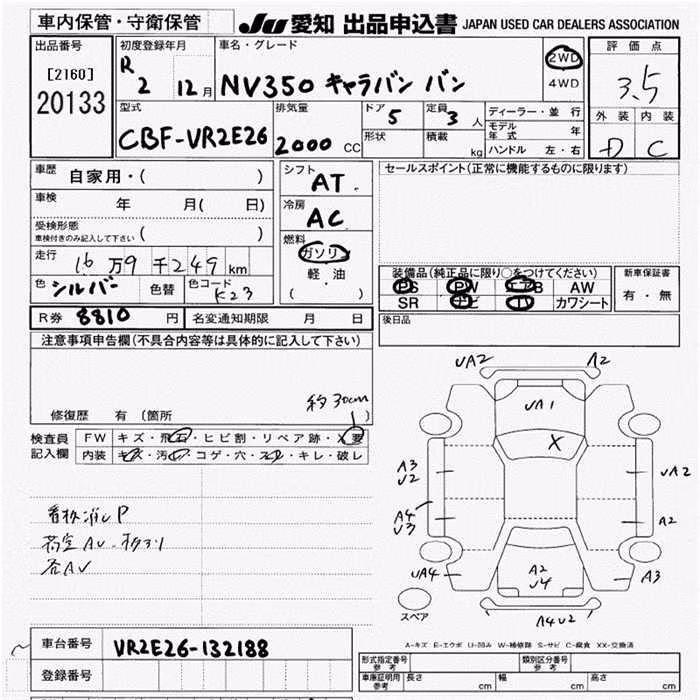 車内保管・守衛保管
JU 愛知 出品申込書 JAPAN USED CAR DEALERS ASSOCIATION
出品番号
[2160]
20133
初度登録年月
R 2 12月
車名・グレード
NV350 キャラバン バン
2WD
4WD
評価点
3.5
外装 内装
D C
型式
CBF-VR2E26
排気量
2000 CC
ドア 5
形状
定員 3 人
積載 kg
ディーラー・並行
モデル年式 年
ハンドル 左・右
車歴 自家用・( )
車検 年 月( 日)
受検形態
車検付きのみ記入して下さい ( )
走行 16万9千249 km
色 シルバー 色替 色コード K23
シフト AT
冷房 AC
燃料
ガソリン
軽油
( )
セールスポイント(正常に機能するものに限ります)
装備品(純正品に限り○をつけてください)
PS PW エアB AW
SR ナビ TV カワシート
新車保証書
有・無
R券 8810 円 名変通知期限 月 日
後日品
注意事項申告欄(不具合内容等は具体的に記入して下さい)
約30cm
修復歴 有(箇所 )
検査員
記入欄
FW キズ・飛石・ヒビ割・リペア跡・X要
内装 キズ・汚レ・コゲ・穴・スレ・キレ・破レ
各AU
UA2 A2
UA1
X
A3
U2
UA2
A4
U3
A2
UA4
A2
U4
A3
スペア
A4U2
A-キズ E-エクボ U-凹み W-補修跡 S-サビ C-腐食 XX-交換済
車台番号 VR2E26-132188
登録番号
形式指定番号
参考
類別区分番号
参考
車庫証明用
参考
長さ cm 幅 cm 高さ cm